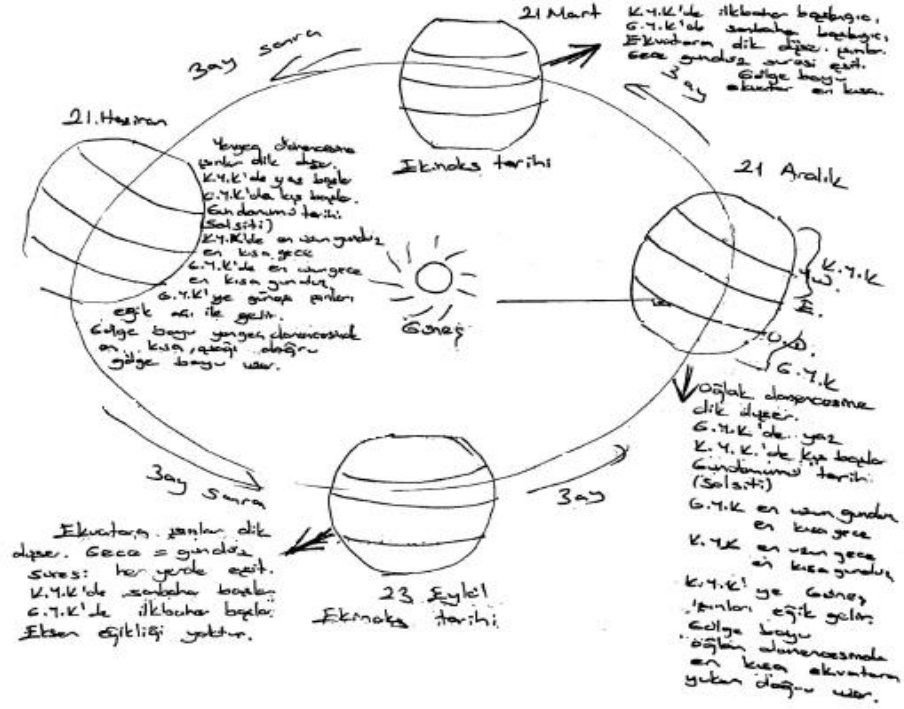 21 Mart
K.Y.K'de ilkbahar başlangıcı,
G.Y.K'de sonbahar başlangıcı,
Ekvatora dik düşer ışınlar.
Gece gündüz süresi eşit.
Gölge boyu
ekvator en kısa.
3ay sonra
3ay
Ekinoks tarihi
21 Haziran
Yengeç dönencesine
ışınlar dik düşer.
K.Y.K'de yaz başlar
G.Y.K'de kış başlar.
Gündönümü tarihi
(Solsiti)
K.Y.K'de en uzun gündüz
en kısa gece
G.Y.K'de en uzun gece
en kısa gündüz
G.Y.K'ye güneş ışınları
eğik açı ile gelir.
Gölge boyu yengeç dönencesinde
en kısa, aşağı doğru
gölge boyu uzar.
Güneş
21 Aralık
K.Y.K
Y.D.
E.
O.D.
G.Y.K
Oğlak dönencesine
dik düşer.
G.Y.K'de yaz
K.Y.K.'de kış başlar
Gündönümü tarihi
(Solsiti)
G.Y.K en uzun gündüz
en kısa gece
K.Y.K en uzun gece
en kısa gündüz
K.Y.K'ye Güneş
ışınları eğik gelir.
Gölge boyu
oğlak dönencesinde
en kısa ekvatora
yukarı doğru uzar.
3ay sonra
3ay
Ekvatora ışınlar dik
düşer. Gece = gündüz
süresi her yerde eşit.
K.Y.K'de sonbahar başlar
G.Y.K'de ilkbahar başlar
Eksen eğikliği yoktur.
23 Eylül
Ekinoks tarihi